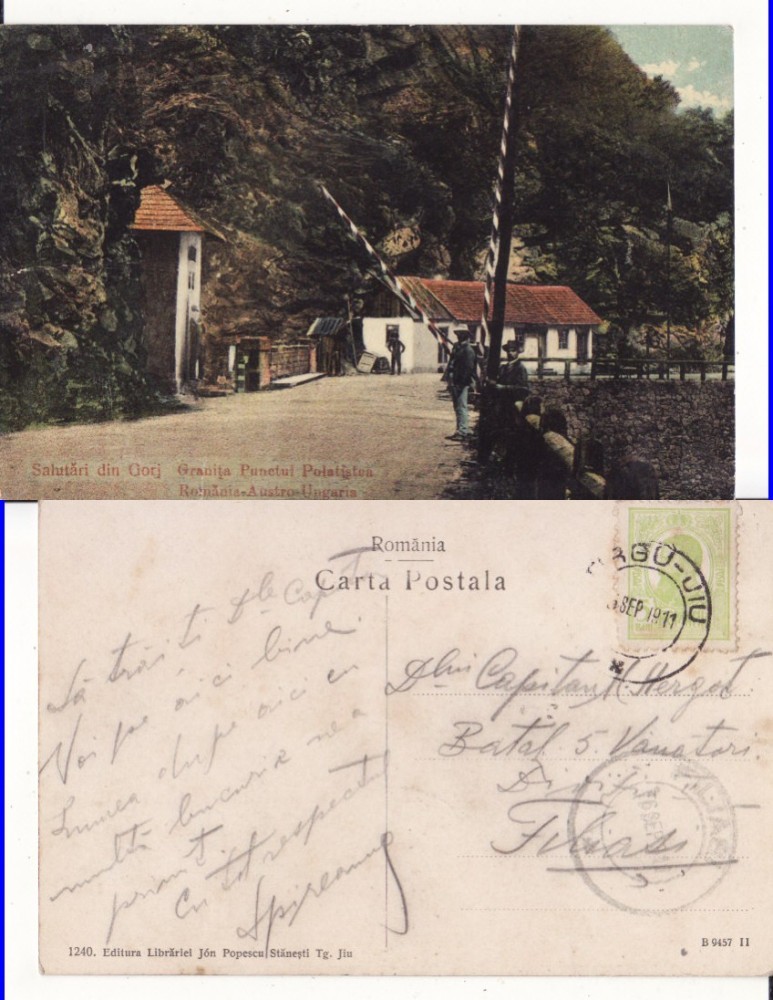 Salutări din Gorj Graniţa Punctul Polatiştea
România-Austro-Ungaria
România
Carta Postala
TÂRGU-JIU
SEP 1911
Să trăiţi Dle Capit
Noi pe aici bine.
Lumea dupe aici cu
multă bucurie ne a
primit.
Cu tot respectul
Dlui Capitan Hergot.
Batal. 5. Vanatori.
Filiasi
16 SEP
1240. Editura Librăriei Jón Popescu Stănești Tg. Jiu
B 9457 II